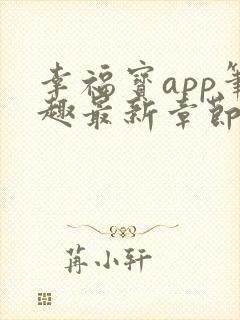 幸福宝app笔
趣最新章节
苒小轩